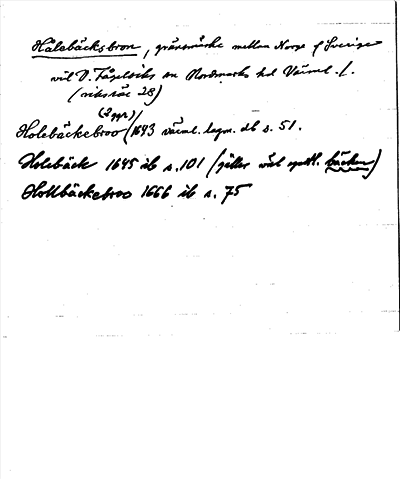 Hålebäcksbron, gränsmärke mellan Norge o/ Sverige
vid V. Fågelviks sn Nordmarks hd Värml. /.
(riksröse 28)
(2 ggr)
Holebäckebroo (1643 värml. lagm. db s. 51.
Holebäck 1645 ib s. 101 (gäller väl egentl. bäcken)
Hollbäckebroo 1666 ib s. 75